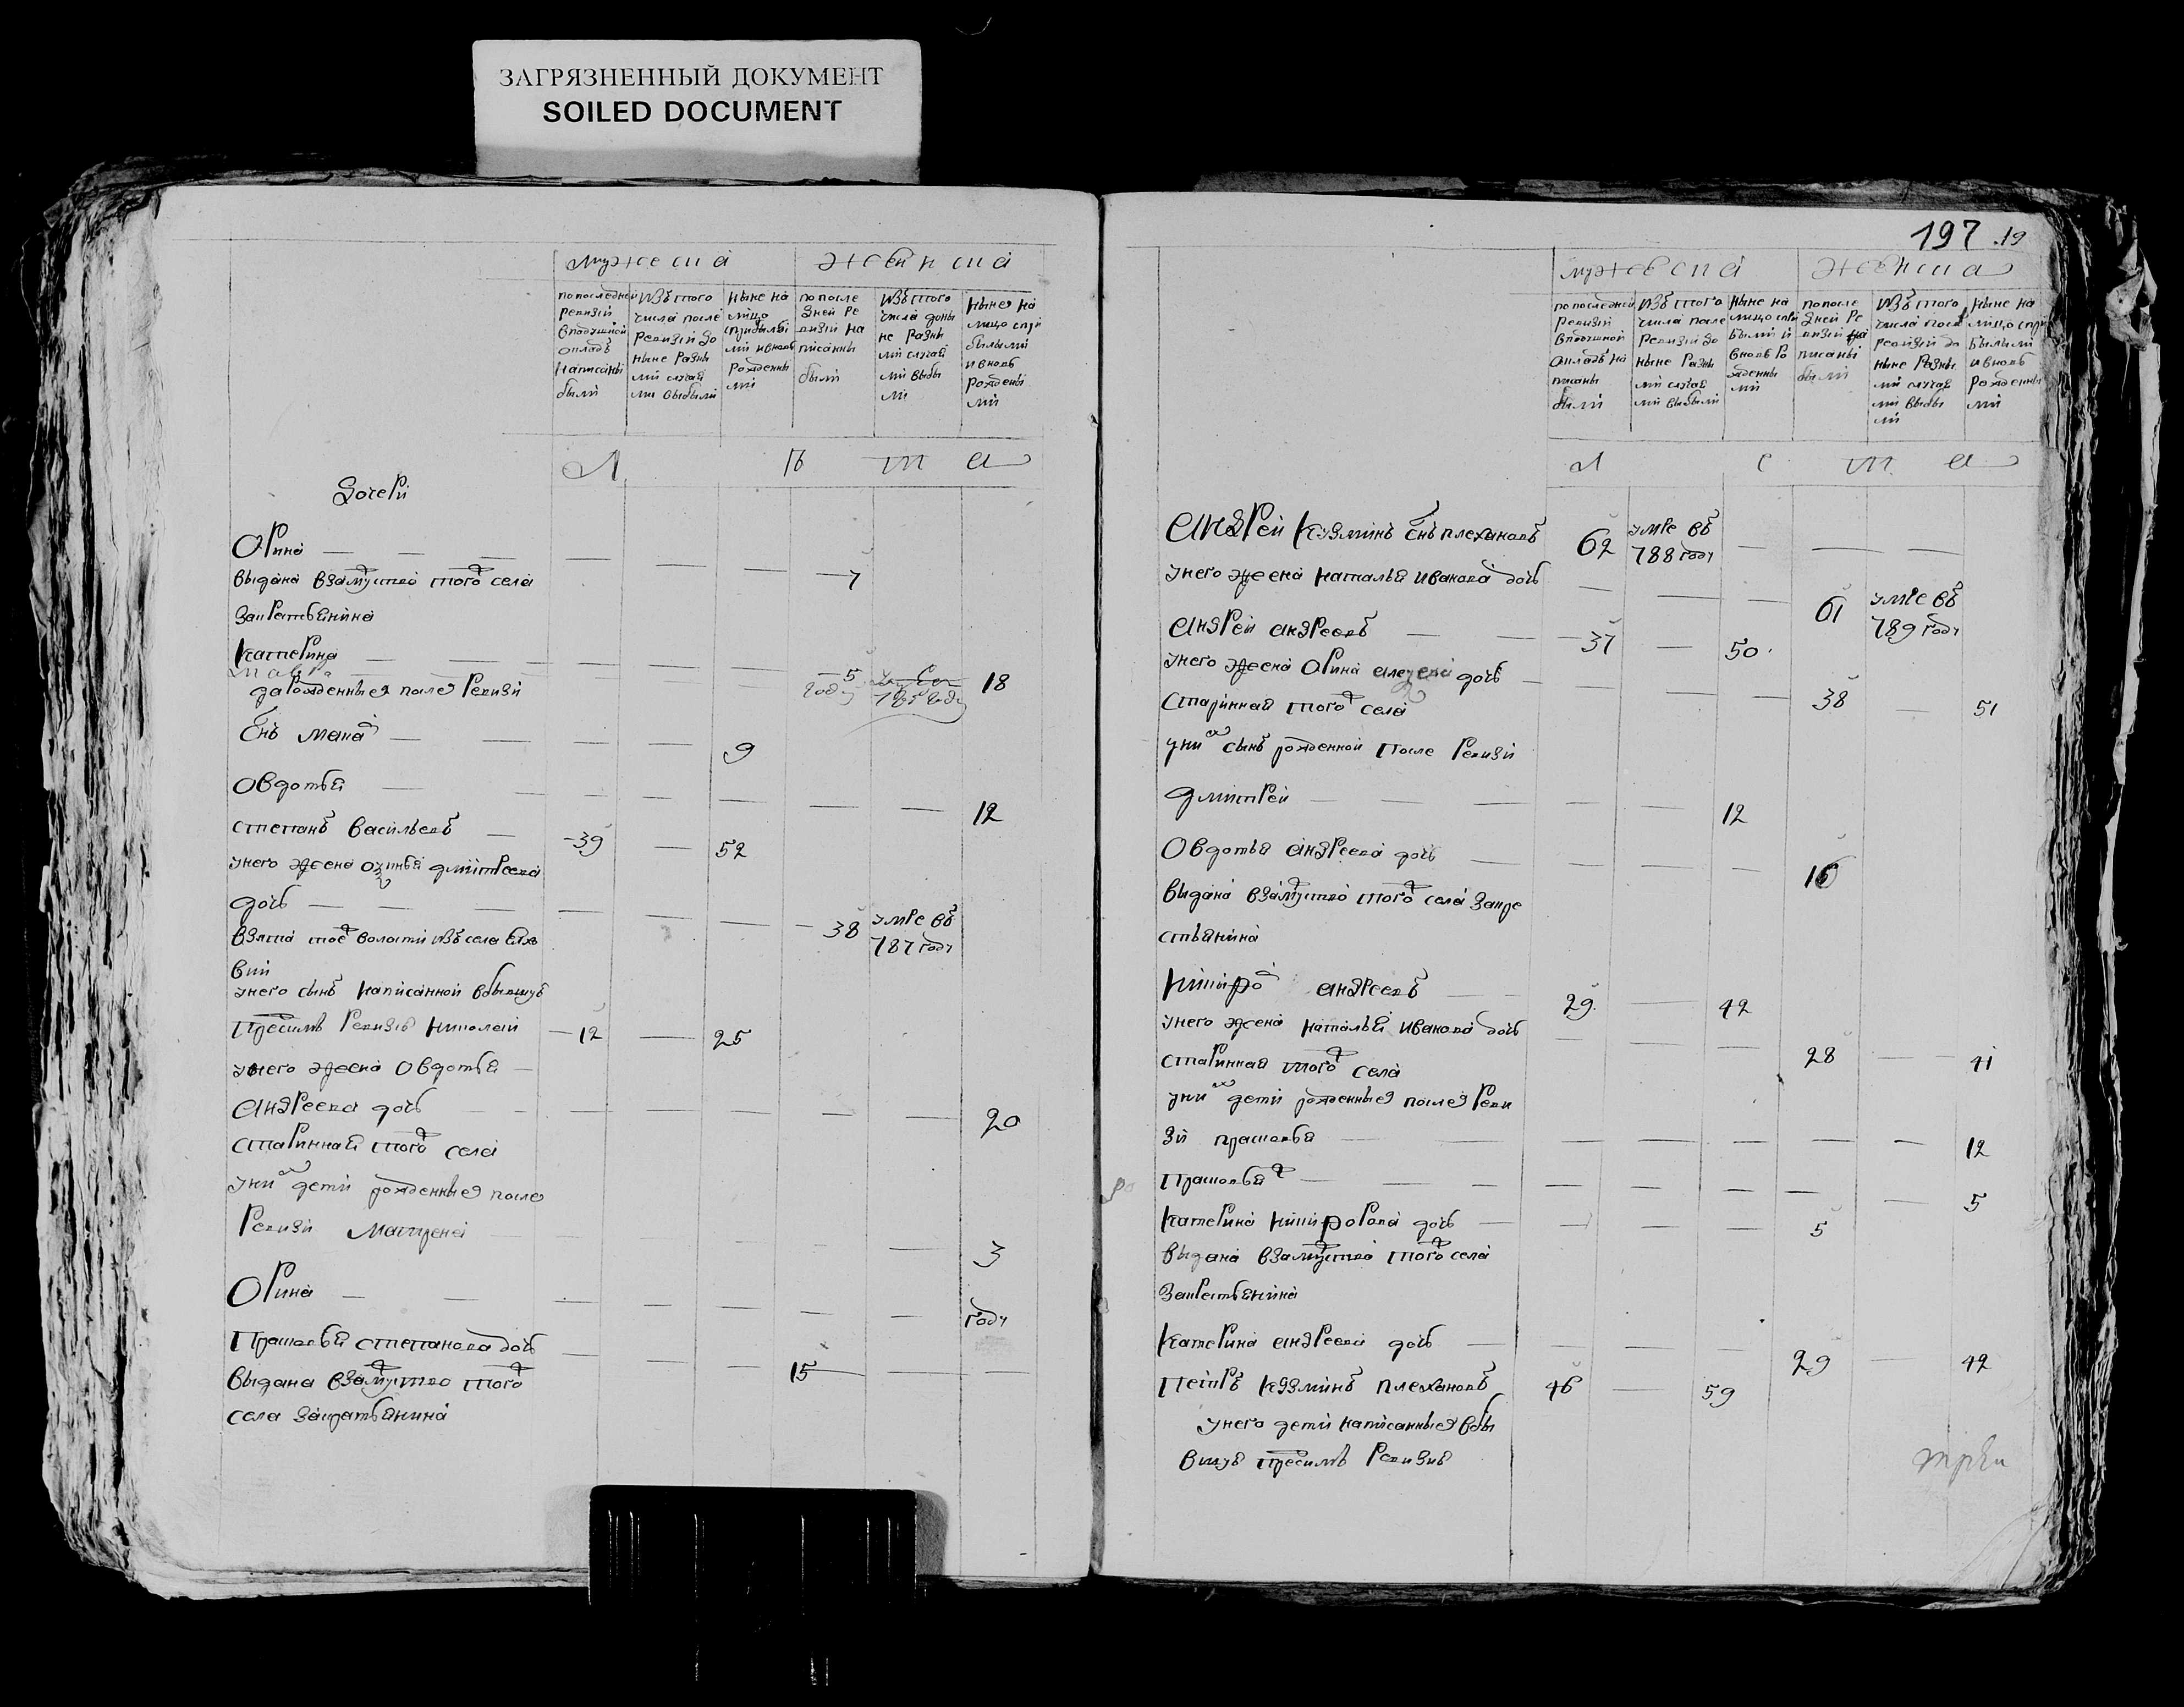 ЗАГРЯЗНЕННЫЙ ДОКУМЕНТ
SOILED DOCUMENT
мужеска
женска
по последней
ревизіи
в подушной
окладъ
написаны
были
изъ того
числа после
ревизіи до
ныне разны
ми случая
ми выбыли
ныне на
лицо
с прибылы
ми и вновь
рожденны
ми
по после
дней ре
визіи на
писанны
были
изъ того
числа доны
не разны
ми случая
ми выбы
ли
ныне на
лицо с при
былыми
и вновь
рожденны
ми
Лѣта
дочери
Орина — 7
выдана взамуство того села
за крестьянина
Катерина — 5 18
году
да рожденныя после ревизи
Снъ Мака — 9
Овдотья — 12
Степанъ Васильевъ — 39 — 52
у него жена дмитреева
дочь — 38 умре въ
787 году
взята тое волости изъ села
у него сынъ написанной в бывшую
пред симъ ревизю Николай — 12 — 25
у него жена Овдотья —
Андреева дочь — 20
старинная того села
у них дети рожденныя после
ревизи Матрена — 3
Орина — году
Прасковья Степанова дочь — 15
выдана взамуство того
села за кратьянина
197 .19
мужеска
женска
по последней
ревизіи
в подушной
окладъ на
писаны
были
изъ того
числа после
ревизіи до
ныне разны
ми случая
ми выбыли
ныне на
лицо с при
былыми и
вновь ро
жденны
ми
по после
дней ре
визіи на
писаны
были
изъ того
числа после
ревизіи до
ныне разны
ми случая
ми выбы
ли
ныне на
лицо с при
былыми
и вновь
рожденны
ми
Лета
Андрей Кузминъ снъ Плехановъ 62 умре въ
788 году
у него жена Наталья Иванова дочь — 61 умре въ
789 году
Андрей Андреевъ — 37 — 50
у него жена Орина дочь — 38 — 51
старинная того села
у них сынъ рожденной после ревизи
Дмитрей — 12
Овдотья Андреева дочь — 16
выдана взамуство того села за кре
стьянина
Никифо Андреевъ — 29 — 42
у него жена Наталья Иванова дочь — 28 — 41
старинная того села
у них дети рожденныя после реви
зи Прасковья — 12
Прасковья — 5
Катерина Никифорова дочь — 5
выдана взамуство того села
за крестьянина
Катерина Андреева дочь — 29 — 42
Петръ Кузминъ Плехановъ 46 — 59
у него дети написанныя в бы
вшую пред симъ ревизию